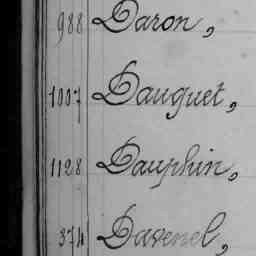 988 Daron,
1007 Dauguet,
1128 Dauphin,
374 Davenel,